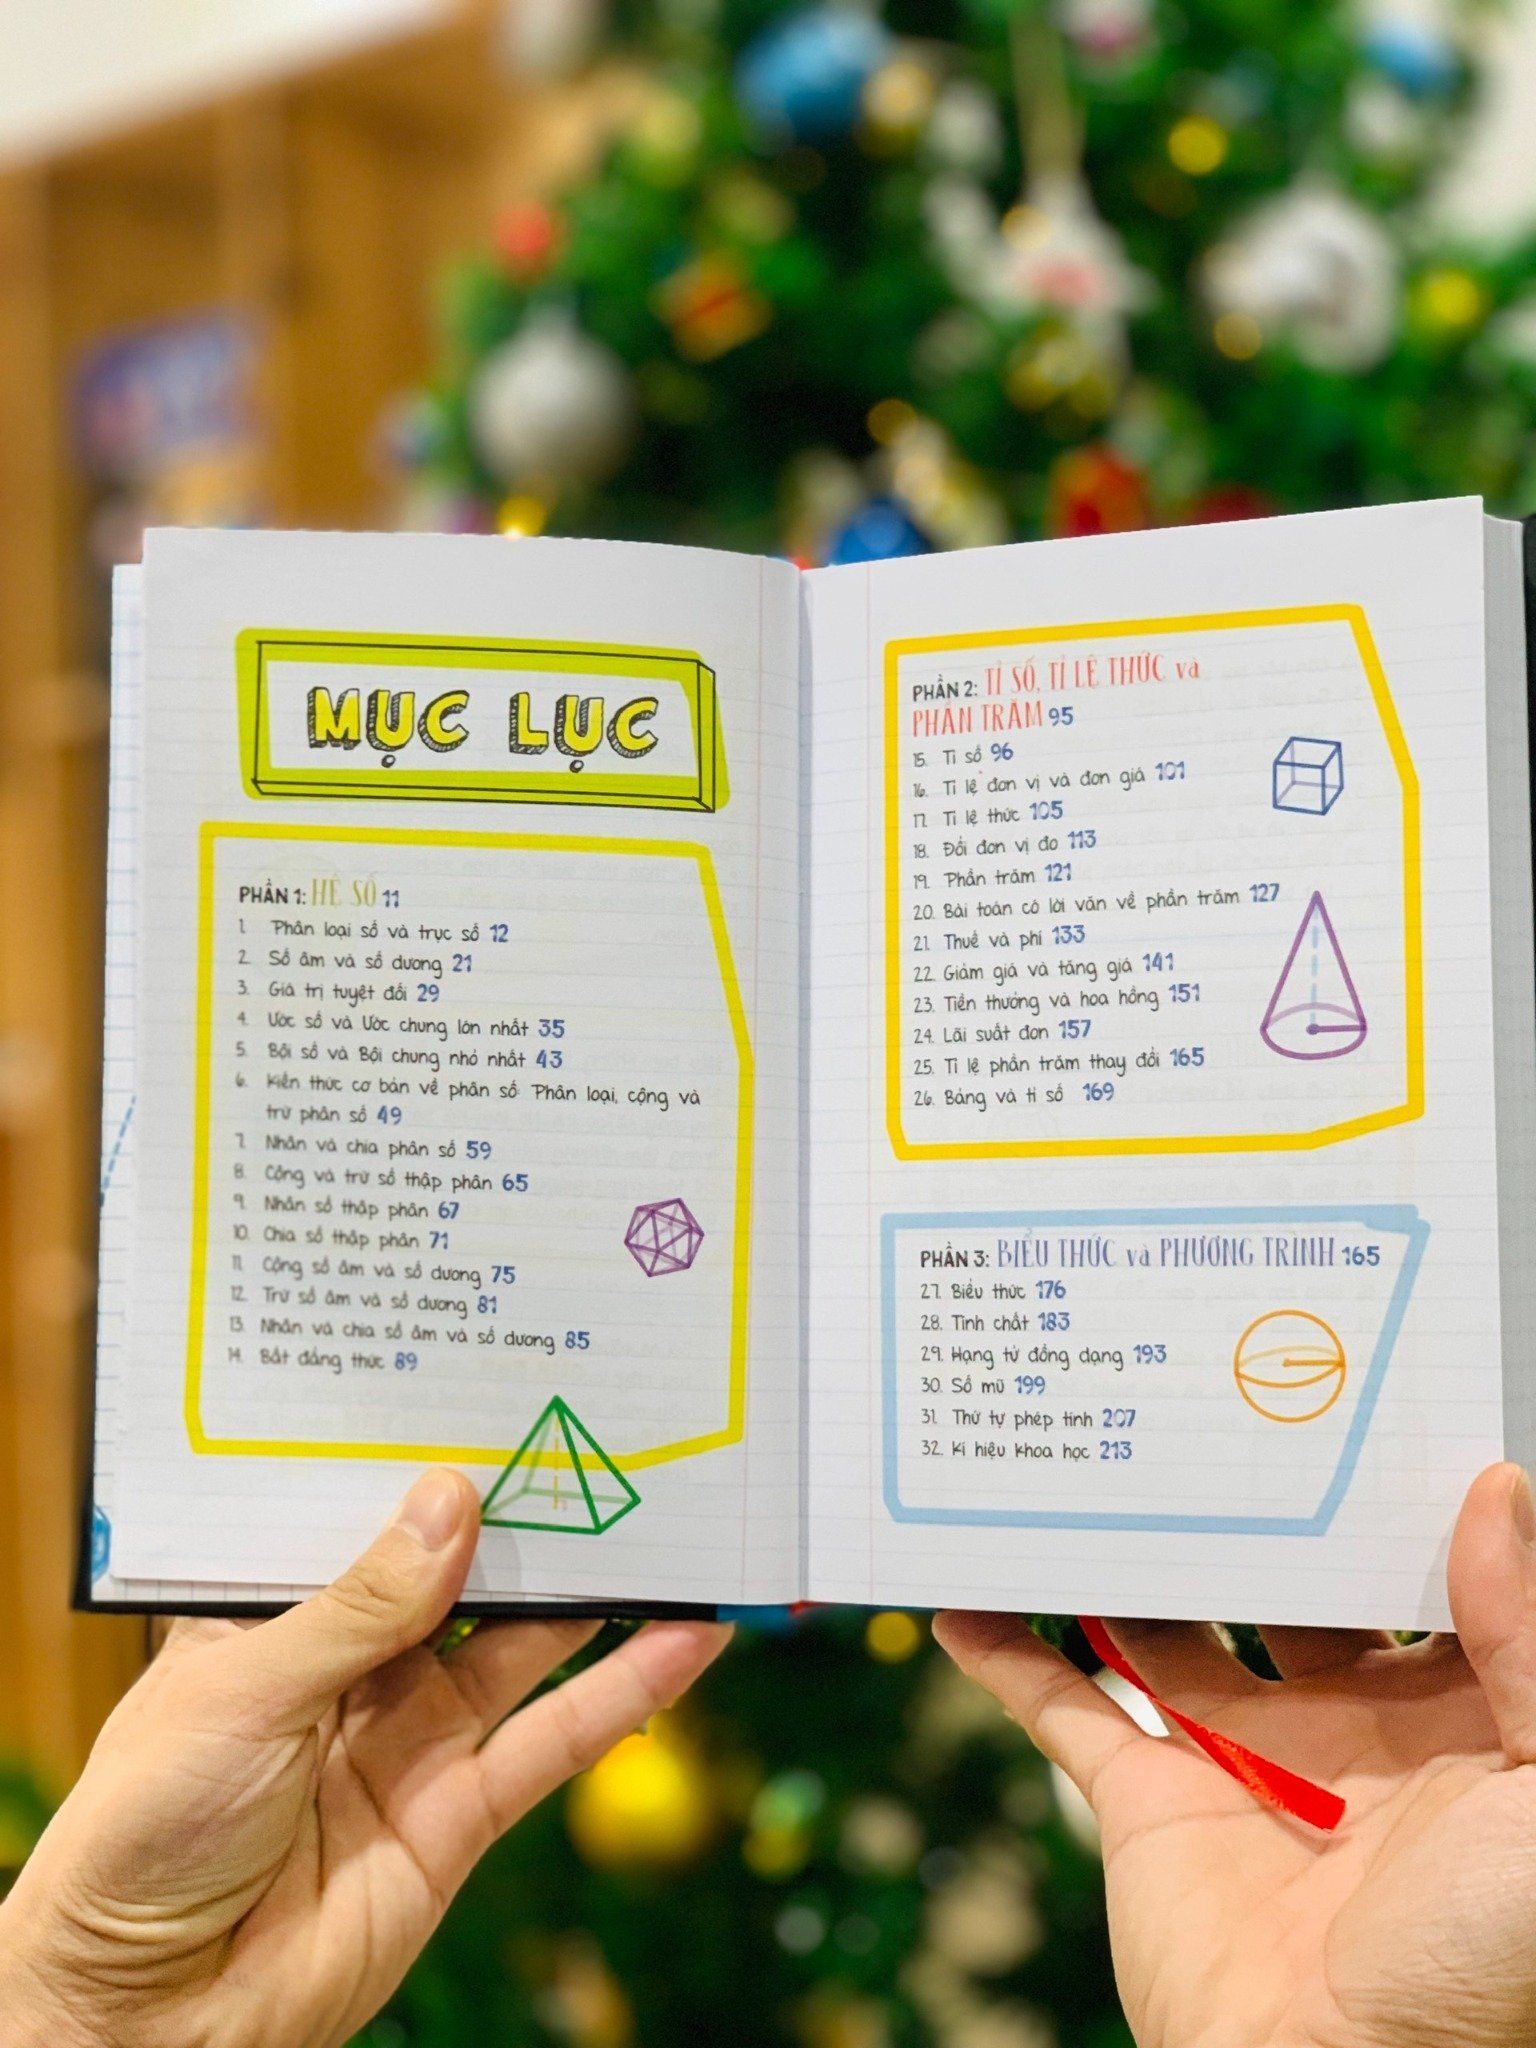 MỤC LỤC
PHẦN 1: HỆ SỐ 11
1. Phân loại số và trục số 12
2. Số âm và số dương 21
3. Giá trị tuyệt đối 29
4. Ước số và Ước chung lớn nhất 35
5. Bội số và Bội chung nhỏ nhất 43
6. Kiến thức cơ bản về phân số: Phân loại, cộng và
trừ phân số 49
7. Nhân và chia phân số 59
8. Cộng và trừ số thập phân 65
9. Nhân số thập phân 67
10. Chia số thập phân 71
11. Cộng số âm và số dương 75
12. Trừ số âm và số dương 81
13. Nhân và chia số âm và số dương 85
14. Bất đẳng thức 89
PHẦN 2: TỈ SỐ, TỈ LỆ THỨC và
PHẦN TRĂM 95
15. Tỉ số 96
16. Tỉ lệ đơn vị và đơn giá 101
17. Tỉ lệ thức 105
18. Đổi đơn vị đo 113
19. Phần trăm 121
20. Bài toán có lời văn về phần trăm 127
21. Thuế và phí 133
22. Giảm giá và tăng giá 141
23. Tiền thưởng và hoa hồng 151
24. Lãi suất đơn 157
25. Tỉ lệ phần trăm thay đổi 165
26. Bảng và tỉ số 169
PHẦN 3: BIỂU THỨC và PHƯƠNG TRÌNH 165
27. Biểu thức 176
28. Tính chất 183
29. Hạng tử đồng dạng 193
30. Số mũ 199
31. Thứ tự phép tính 207
32. Kí hiệu khoa học 213